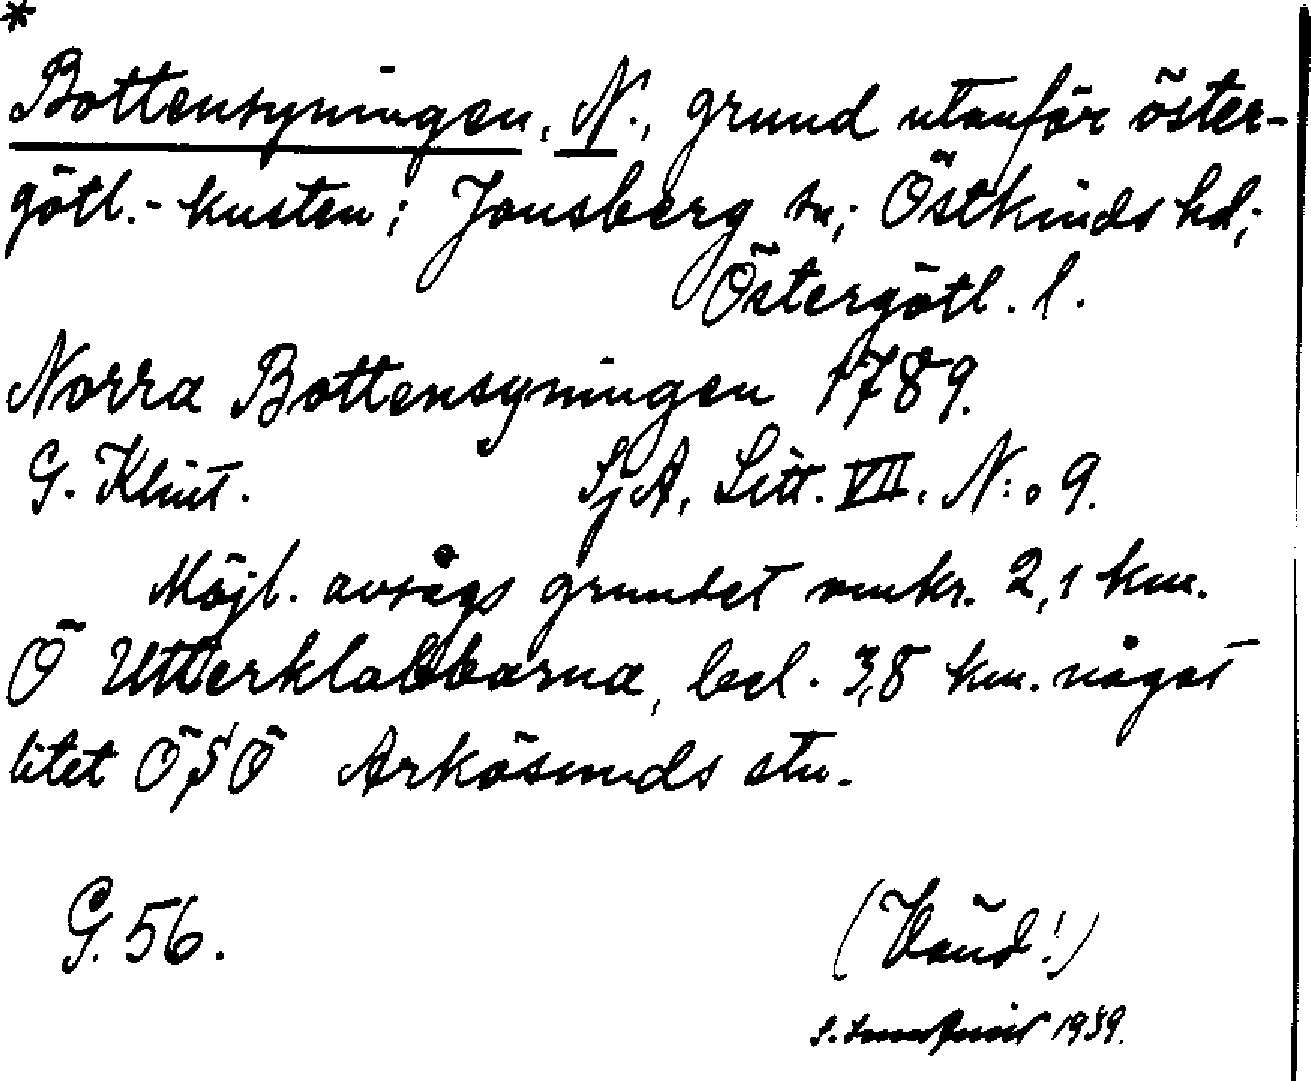 *
Bottensyningen, N., grund utanför öster-
götl.-kusten; Jonsberg sn; Östkinds hd;
Östergötl. l.
Norra Bottensyningen 1789.
G. Klint. SjA, Litt. VII. N:o 9.
Möjl. avsågs grundet omkr. 2,1 km.
Ö Utterklabbarna, bel. 3,8 km. något
litet ÖSÖ Arkösunds stn.
G. 56. (Vänd!)
1939.